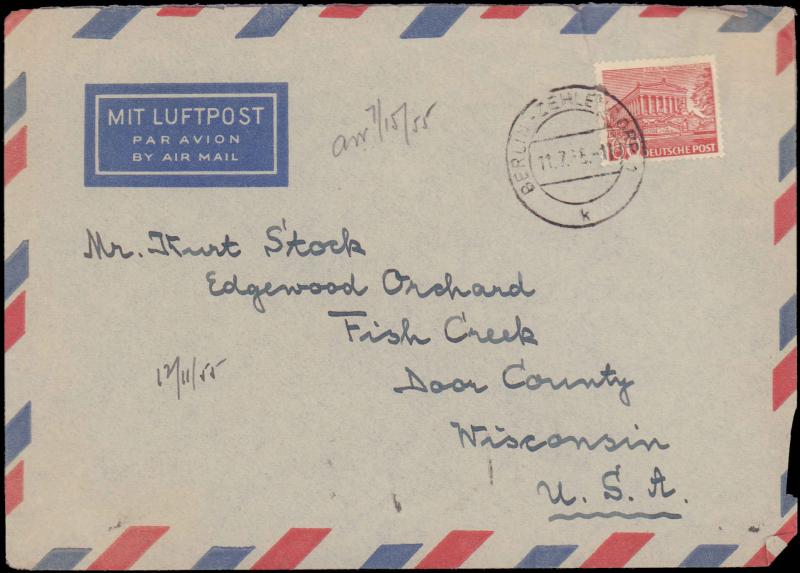 MIT LUFTPOST
PAR AVION
BY AIR MAIL
arr 7/15/55
BERLIN-ZEHLENDORF 1
11.7.55.-1
k
DEUTSCHE POST
Mr. Kurt Stock
Edgewood Orchard
Fish Creek
Door County
Wisconsin
U. S. A.
12/11/55